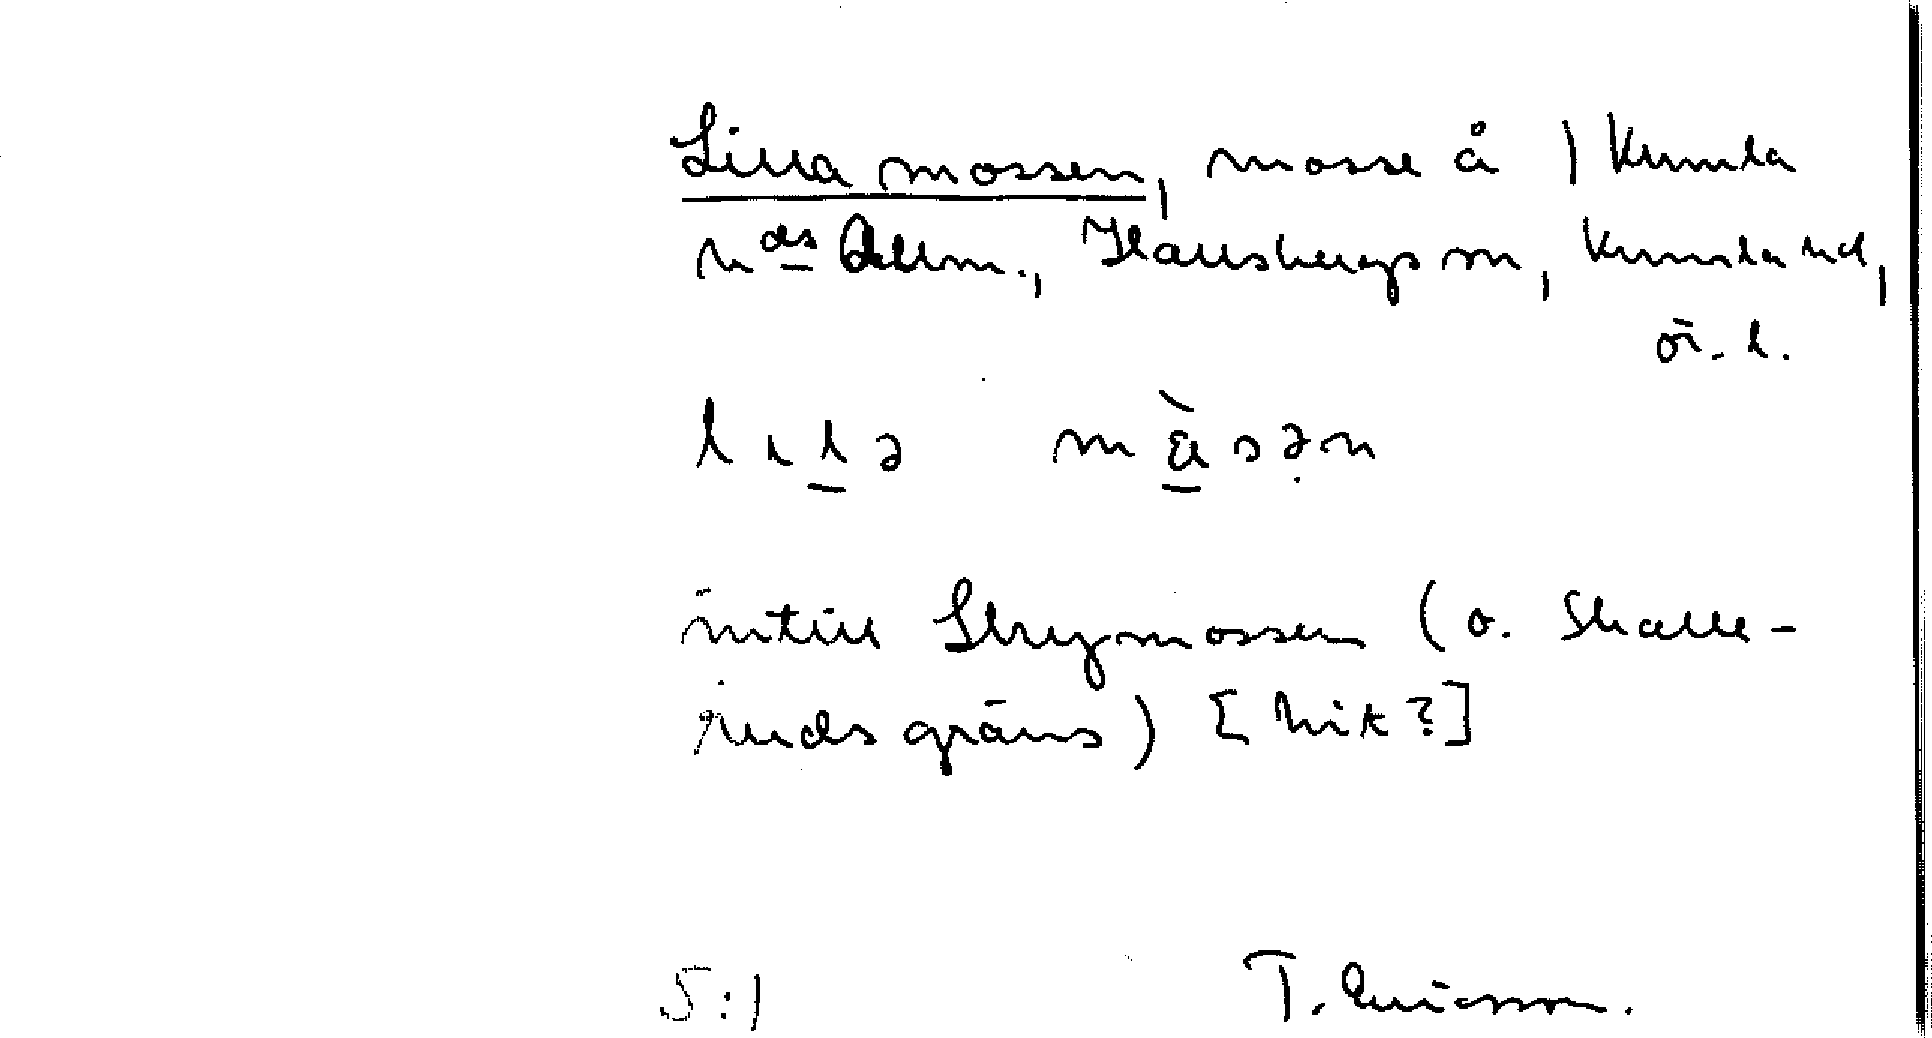 Lilla mossen, mosse å | Kumla
hds allm., Hallsbergs sn, Kumla hd,
ör. l.
lılə måsən
intill Strymossen (o. Skalle-
rudsgräns) [hit?]
5:1 T. Ericsson.